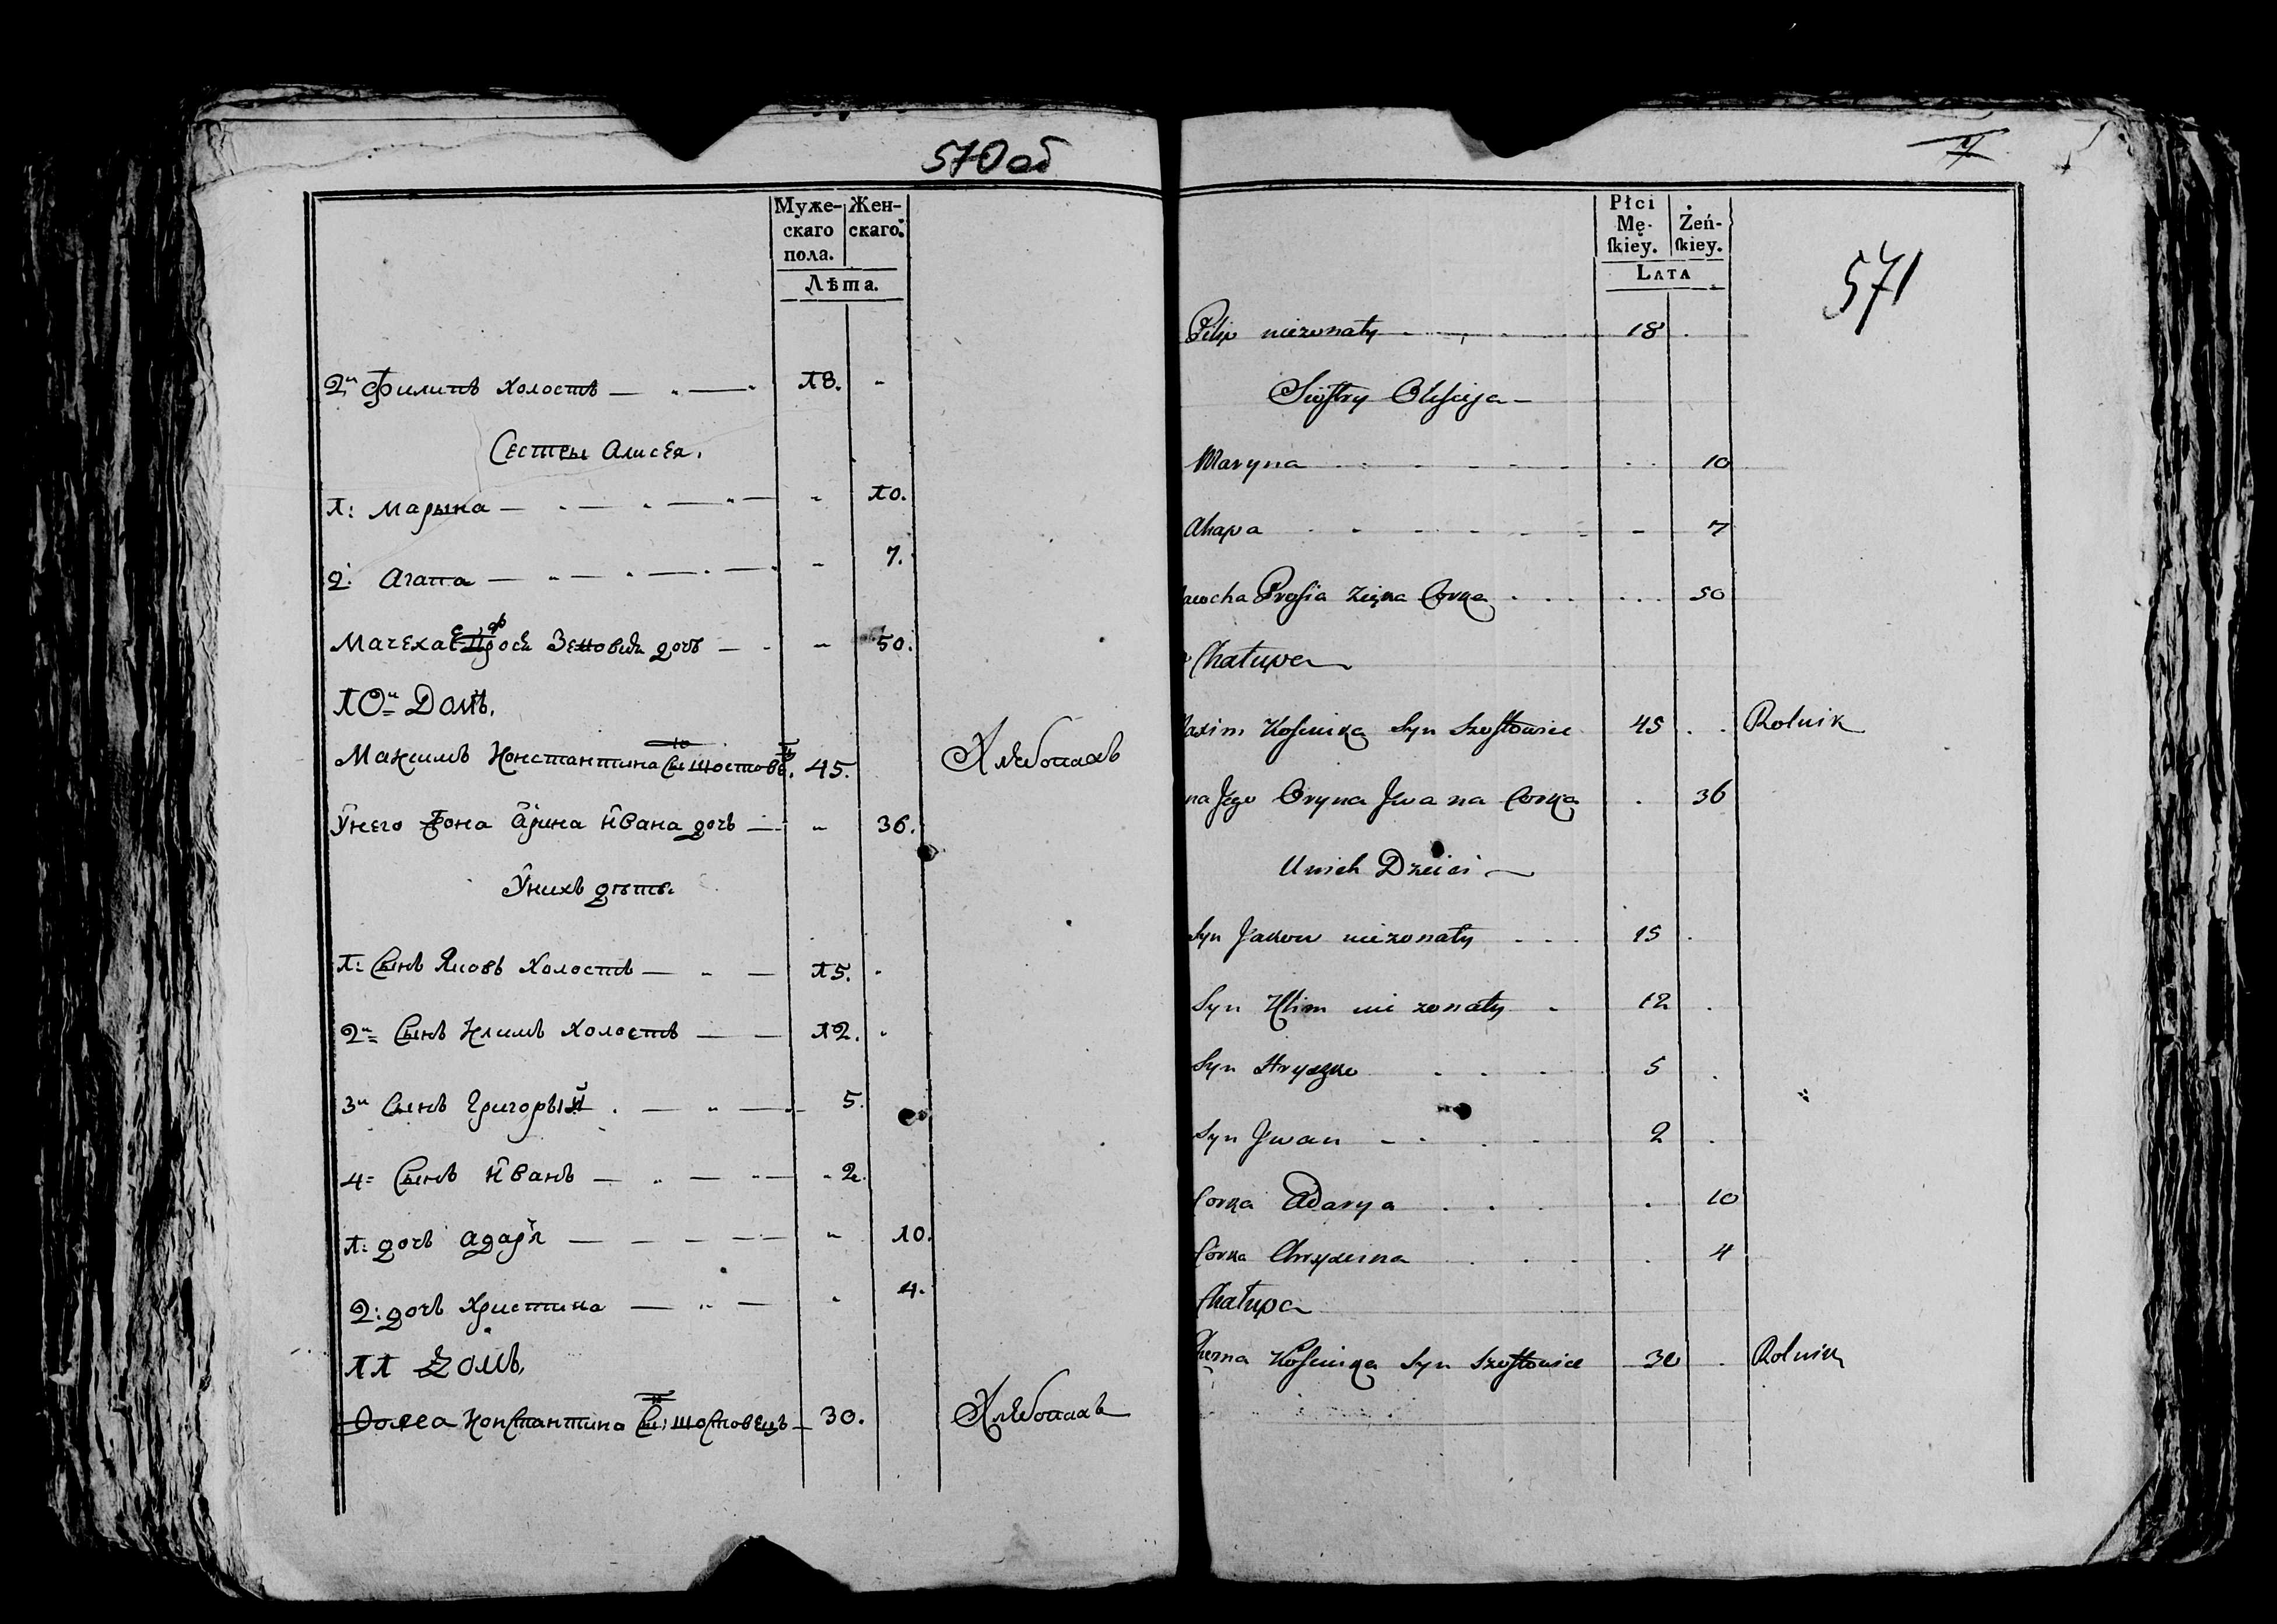 570об
Муже- Жен-
скаго скаго.
пола.
Лѣта.
2й Филипъ холостъ — 18. "
Сестры Алисея.
1: Марына — " 10.
2: Агапа — " 7.
Мачеха Зеновия дочь — " 50.
10й Домъ.
Максимъ Константина Сы: шостове 45. Хлебопахъ
Унего жона Арина Ивана дочь — " 36.
Унихъ дѣти.
1: Сынъ Яковъ Холостъ — 15. "
2й Сынъ Климъ Холостъ — 12. "
3й Сынъ Григорый — 5.
4= Сынъ Иванъ — 2.
1: дочь Адаря — " 10.
2: дочь Христина — " 4.
11 Домъ.
Константина Сы: шостовецъ — 30. Хлебопахъ
571
Płci
Mę- Żeń-
ſkiey. ſkiey.
LATA
Filip niezonaty 18
Siostry Olisieja
Maryna 10
Ahapa 7
acocha Prosia Corka 50
Chałupa
axim Kosciuka Syn Szostowiec 45 Rolnik
na Jego Oryna Jwana Corka 36
Unich Dzieci
Syn Jakow niezonaty 15
Syn Klim nie zonaty 12
Syn Hryszko 5
Syn Jwan 2
Corka Adarya 10
Corka Chryscina 4
Chałupa
Kosciuka Syn Szostowiec 30 Rolnik